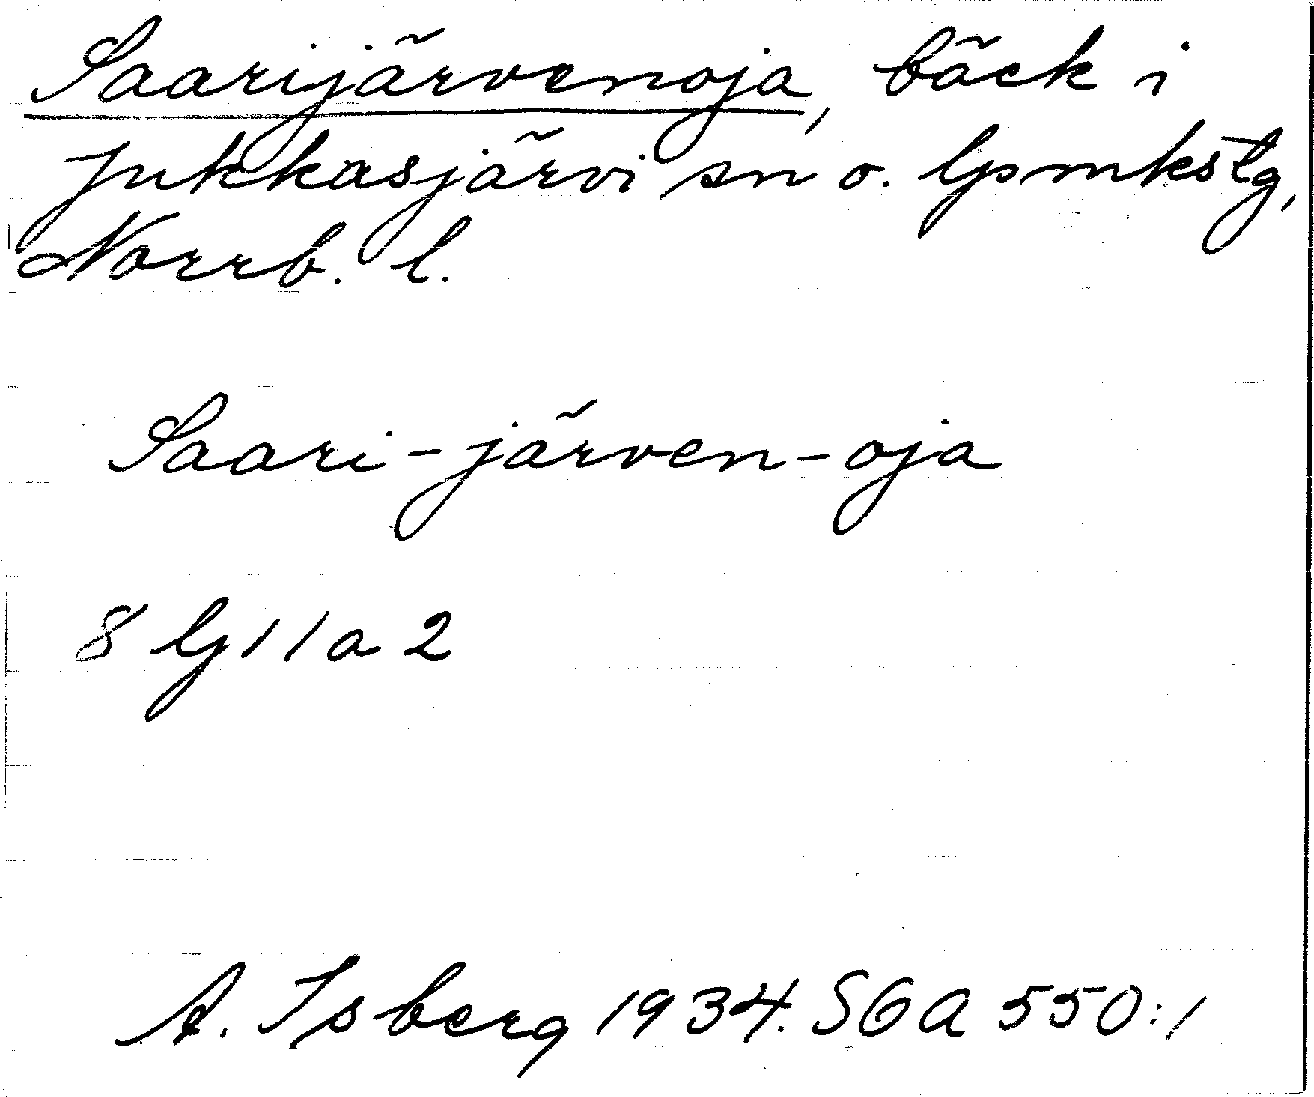 Saarijärvenoja, bäck i
Jukkasjärvi sn o. lpmkstg,
Norrb. l.
Saari-järven-oja
8 lj 11 a 2
A. Isberg 1934. SOA 550:1